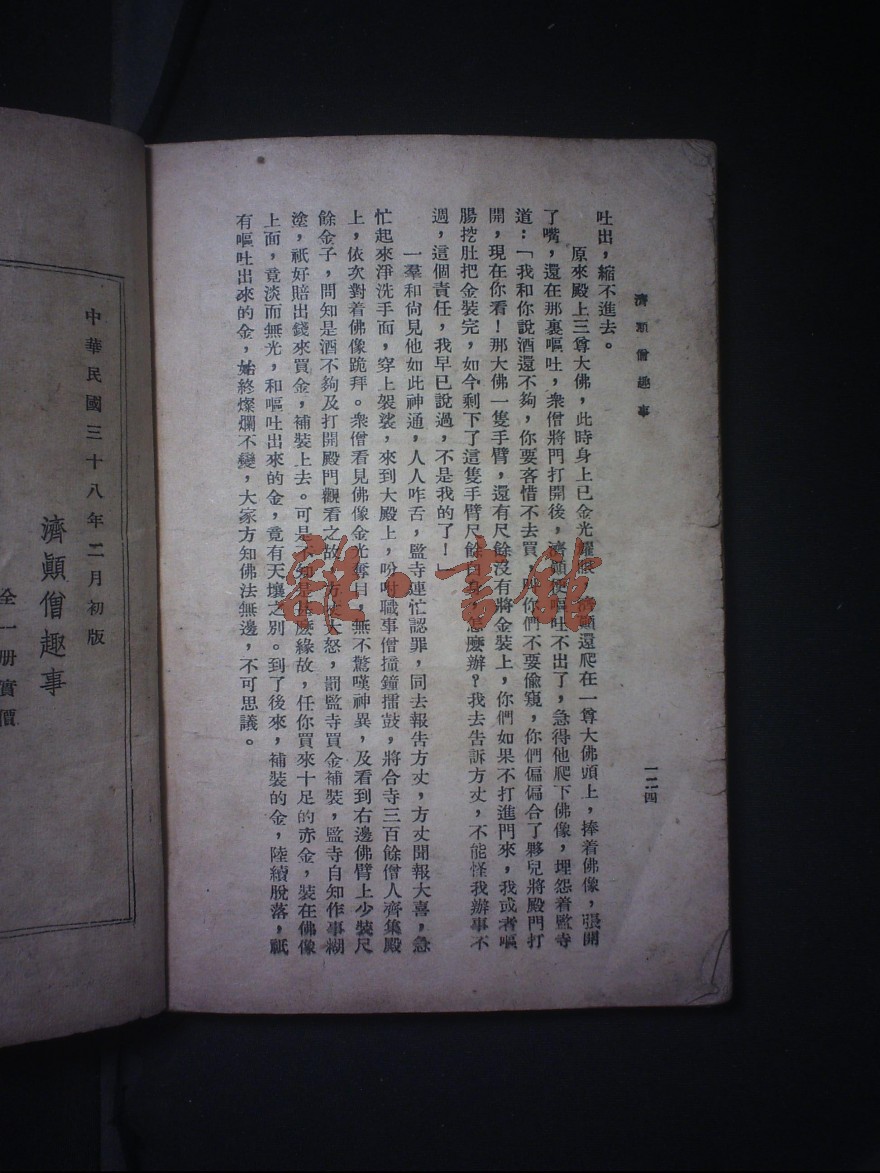 濟顚僧趣事
一二四
吐出，縮不進去。
原來殿上三尊大佛，此時身上已金光耀 濟顚還爬在一尊大佛頭上，捧着佛像，張開
了嘴，還在那裏嘔吐，衆僧將門打開後，濟顚便嘔吐不出了，急得他爬下佛像，埋怨着監寺
道：「我和你說酒還不夠，你要吝惜不去買， 你們不要偸窺，你們偏偏合了夥兒將殿門打
開，現在你看！那大佛一隻手臂，還有尺餘沒有將金裝上，你們如果不打進門來，我或者嘔
腸挖肚把金裝完，如今剩下了這隻手臂尺餘 身，怎麼辦？我去告訴方丈，不能怪我辦事不
週，這個責任，我早已說過，不是我的了！」
一羣和尙見他如此神通，人人咋舌，監寺連忙認罪，同去報告方丈，方丈聞報大喜，急
忙起來淨洗手面，穿上袈裟，來到大殿上，吩咐職事僧撞鐘擂鼓，將合寺三百餘僧人齊集殿
上，依次對着佛像跪拜。衆僧看見佛像金光奪目，無不驚嘆神異，及看到右邊佛臂上少裝尺
餘金子，問知是酒不夠及打開殿門觀看之故，方丈大怒，罰監寺買金補裝，監寺自知作事糊
塗，祇好賠出錢來買金，補裝上去。可是不知是甚麼緣故，任你買來十足的赤金，裝在佛像
上面，竟淡而無光，和嘔吐出來的金，竟有天壤之別。到了後來，補裝的金，陸續脫落，祇
有嘔吐出來的金，始終燦爛不變，大家方知佛法無邊，不可思議。
中華民國三十八年二月初版
濟顚僧趣事
全一册實價
雜·書館